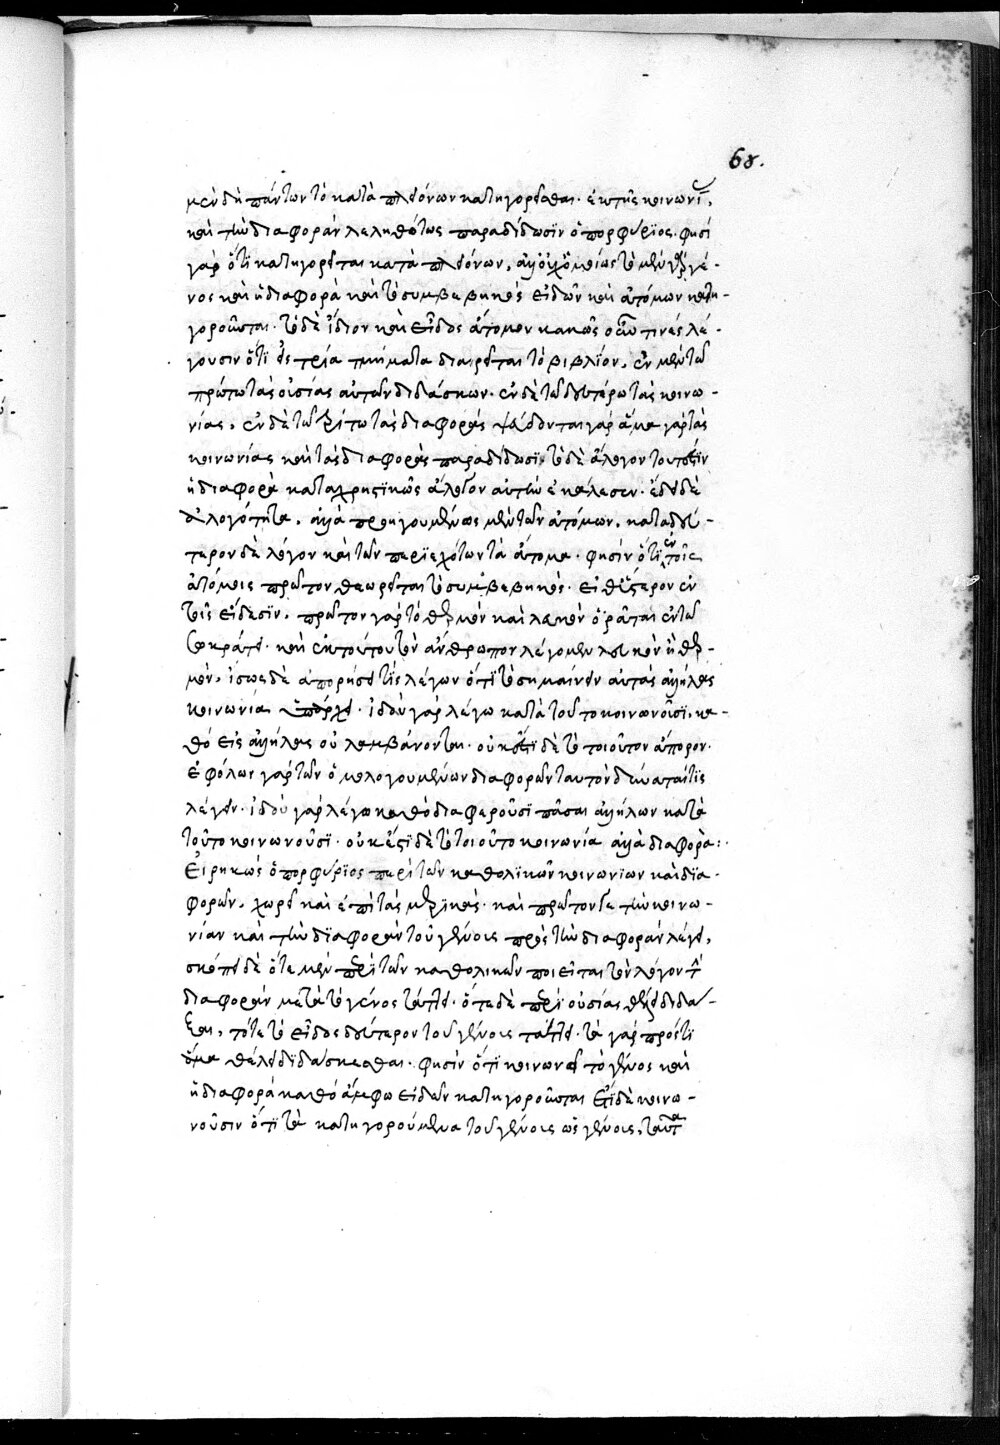 68.
μὲν δὴ πάντων τὸ κατὰ πλειόνων κατηγορεῖσθαι. ἐκ τῆς κοινωνί,
καὶ τὴν διαφορὰν λεληθότως παραδίδωσϊν ὁ πορφύριος. φησὶ
γὰρ ὅτι κατηγορεῖται κατὰ πλειόνων, ἀλλ' οὐχ ὁμοίως τὸ μὲν γὰρ γέ-
νος καὶ ἡ διαφορὰ καὶ τὸ συμβεβηκὸς εἰδῶν καὶ ἀτόμων κατη-
γοροῦνται. τὸ δὲ ἴδιον καὶ εἶδος ἀτόμων κακῶς οὖν τινές λέ-
γουσιν ὅτι εἰς τρία τμήματα διαιρεῖται τὸ βιβλίον, ἐν μὲν τῶ
πρώτω τὰς οὐσίας αὐτῶν διδάσκων. ἐν δὲ τῶ δευτέρω τὰς κοινω-
νίας, ἐν δὲ τῶ τρίτω τὰς διαφοράς ψεύδονται γάρ ἅμα γὰρ τὰς
κοινωνίας καὶ τὰς διαφορὰς παραδίδωσι. τὸ δὲ ἄλογον τουτέστιν
ἡ διαφορὰ καταχρηστικῶς ἄλογον αὐτὴν ἐκάλεσεν. ἔδει δὲ
ἀλογότητα, ἀλλὰ προηγουμένως μὲν τῶν ἀτόμων, κατὰ δεύ-
τερον δὲ λόγον καὶ τῶν περιεχόντων τὰ ἄτομα. φησὶν ὅτι ἐν τοῖς
ἀτόμοις πρῶτον θεωρεῖται τὸ συμβεβηκός. εἶθ' ὕστερον ἐν
τοῖς εἴδεσϊν. πρῶτον γὰρ τὸ θερμὸν καὶ λευκὸν ὁρᾶται ἐν τῶ
σωκράτει. καὶ ἐκ τούτου τὸν ἄνθρωπον λέγομεν λευκὸν ἢ θερ-
μόν, ἴσως δὲ ἀπορήσει τὶς λέγων ὅτι τὸ σημαίνειν αὐτὰς ἀλλήλαις
κοινωνία ὑπάρχει. ἰδοὺ γὰρ λέγω κατὰ τοῦτο κοινωνοῦσι, κα-
θὸ εἰς ἀλλήλας οὐ λαμβάνονται. οὐκ ἔστι δὲ τὸ τοιοῦτον ἄπορον.
ἐφ' ὅλων γὰρ τῶν ὁμολογουμένων διαφορῶν ταυτὸν δύναταί τις
λέγειν. ἰδοὺ γὰρ λέγω καθὸ διαφεροῦσϊ πᾶσαι ἀλλήλων κατὰ
τοῦτο κοινωνοῦσι. οὐκ ἔστι δὲ τὸ τοιοῦτο κοινωνία ἀλλὰ διαφορὰ:.
Εἰρηκὼς ὁ πορφύριος περὶ τῶν καθολϊκῶν κοινωνϊῶν καὶ δϊα-
φορῶν, χωρεῖ καὶ ἐπὶ τὰς μερϊκὰς. καὶ πρῶτον γε τὴν κοινω-
νίαν καὶ τὴν δϊαφορὰν τοῦ γένους πρὸς τὴν διαφορὰν λέγει,
σκόπει δὲ ὅτε μὲν περὶ τῶν καθολικῶν ποιεῖται τὸν λόγον τὴν
διαφορὰν μετὰ τὸ γένος τάττει. ὅτε δὲ περὶ οὐσίας θέλει διδά-
ξαι, τότε τὸ εἶδος δεύτερον τοῦ γένους τάττει. τὰ γὰρ πρός τϊ
ἅμα θέλει δϊδάσκεσθαι. φησὶν ὅτι κοινωνεῖ τὸ γένος καὶ
ἡ διαφορὰ καθὸ ἄμφω εἰδῶν κατηγοροῦνται ἔτι δὲ κοινω-
νοῦσιν ὅτι τὰ κατηγορούμενα τοῦ γένους ὡς γένους, ταῦτα